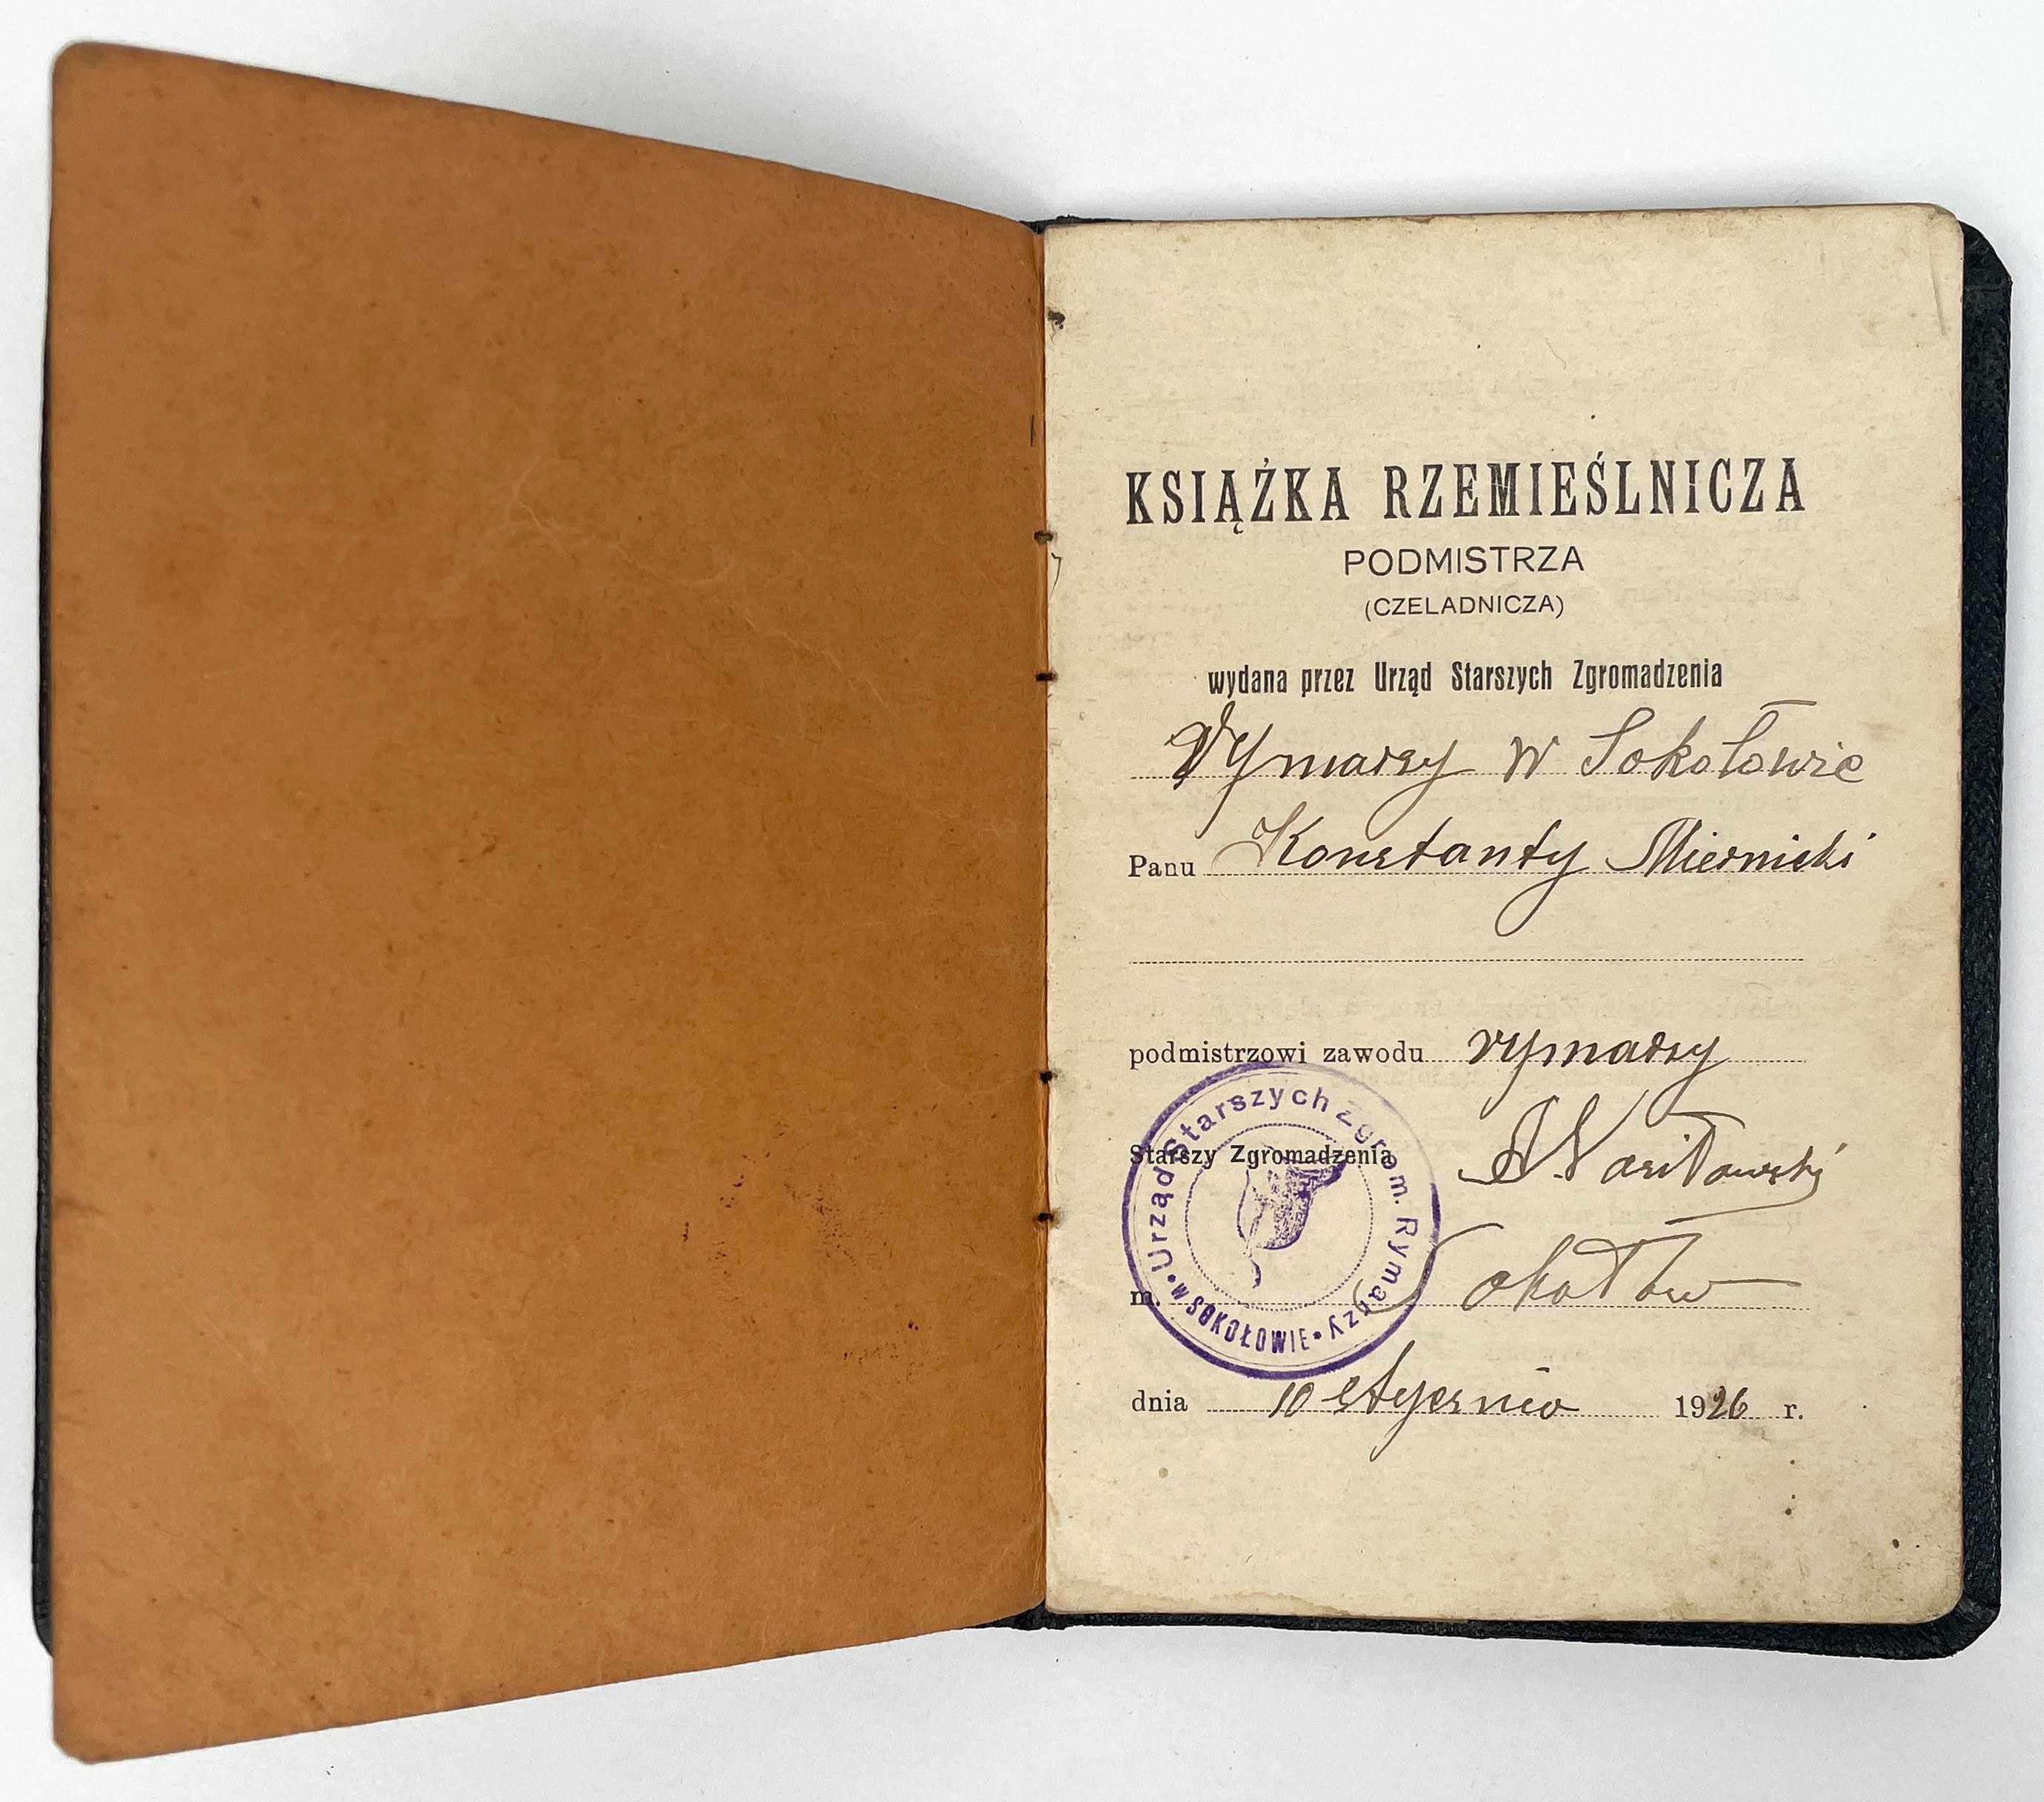 KSIĄŻKA RZEMIEŚLNICZA
PODMISTRZA
(CZELADNICZA)
wydana przez Urząd Starszych Zgromadzenia
Rymarzy w Sokołowie
Panu Konstanty Miernicki
podmistrzowi zawodu rymarzy
Starszy Zgromadzenia
Urząd Starszych Zgrom. Rymarzy
w SOKOŁOWIE
m. Sokołów
dnia 10 stycznia 1926 r.